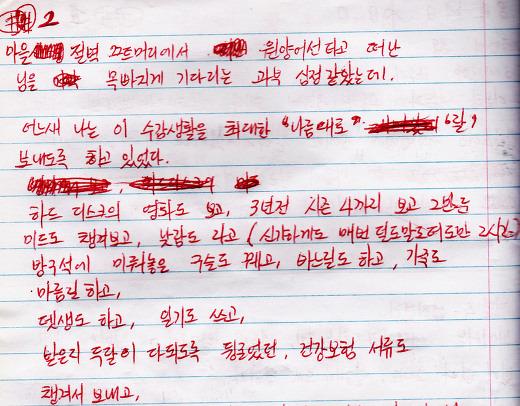 2
마을 절벽 끄트머리에서 원양어선타고 떠난
님을 목빠지게 기다리는 과부 심정 같았는데.
어느새 나는 이 수감생활을 최대한 "나름대로" "
보내도록 하고 있었다.
하드 디스크의 영화도 보고, 3년전 시즌 4까지 보고 그만둔
미드도 챙겨보고, 낮잠도 자고 (신기하게도 매번 알도말도
방구석에 미뤄놓은 구슬도 꿰고, 바느질도 하고, 가죽도
마름질하고,
뎃생도 하고, 일기도 쓰고,
발은리 닳이 다되도록 뒹굴었던, 건강보험 서류도
챙겨서 보내고,